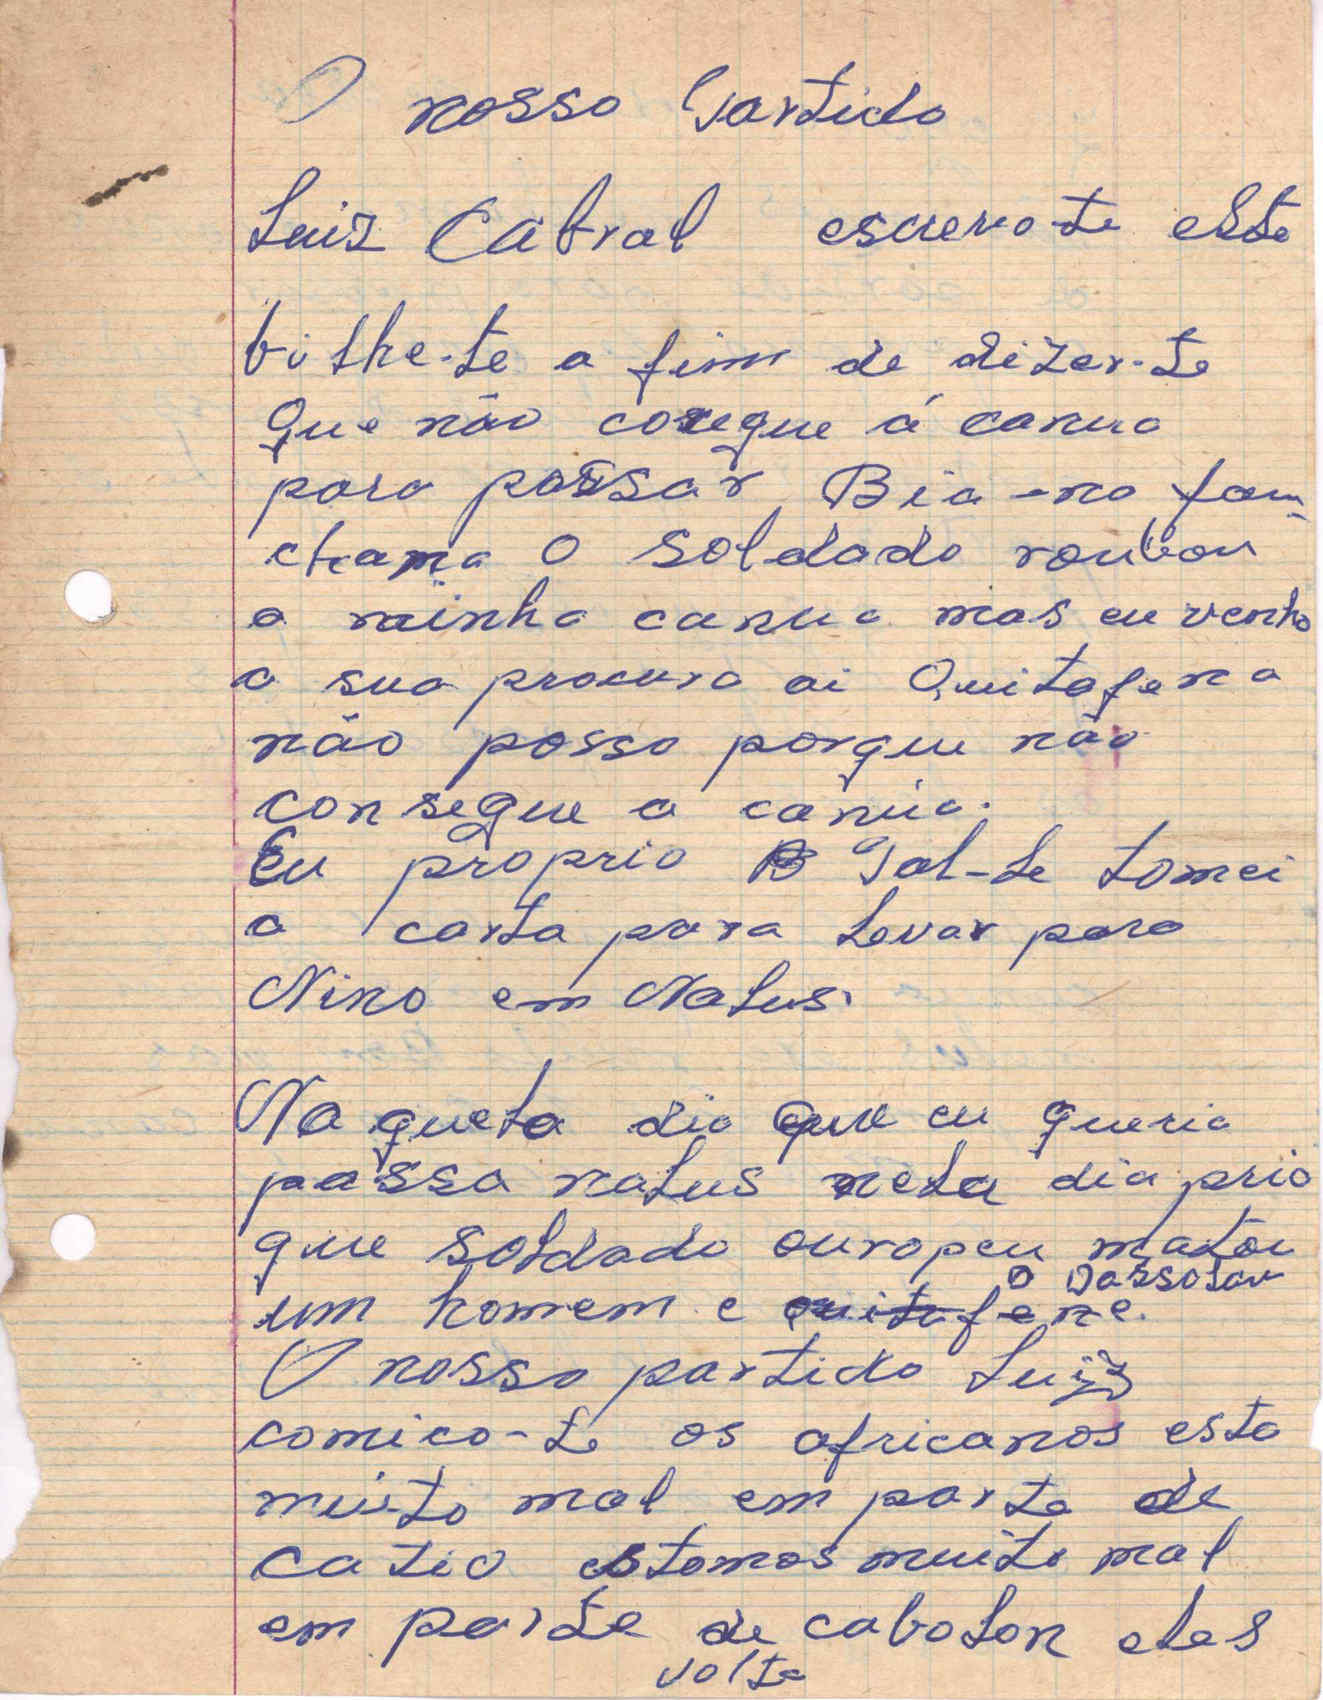 O nosso Partido
Luiz Cabral escrevo-te este
bilhe-te a fim de dizer-te
Que não cosegue á canua
para passar Bia-na fam-
chama O soldado roubou
a minha canua mas eu venho
a sua procura ai Quitafena
não posso porque não
consegue a canúa.
Eu proprio Tal-te tomei
a carta para levar para
Nino em Nalus.
Naquela dia que eu queria
passa nalus nela dia prio
que soldado ouropeu matou
um homem e o Dassolau
quitafene.
O nosso partido Luiz
comico-te os africanos esta
muito mal em parte de
catio estomos muito mal
em parte de cabolon eles
volte